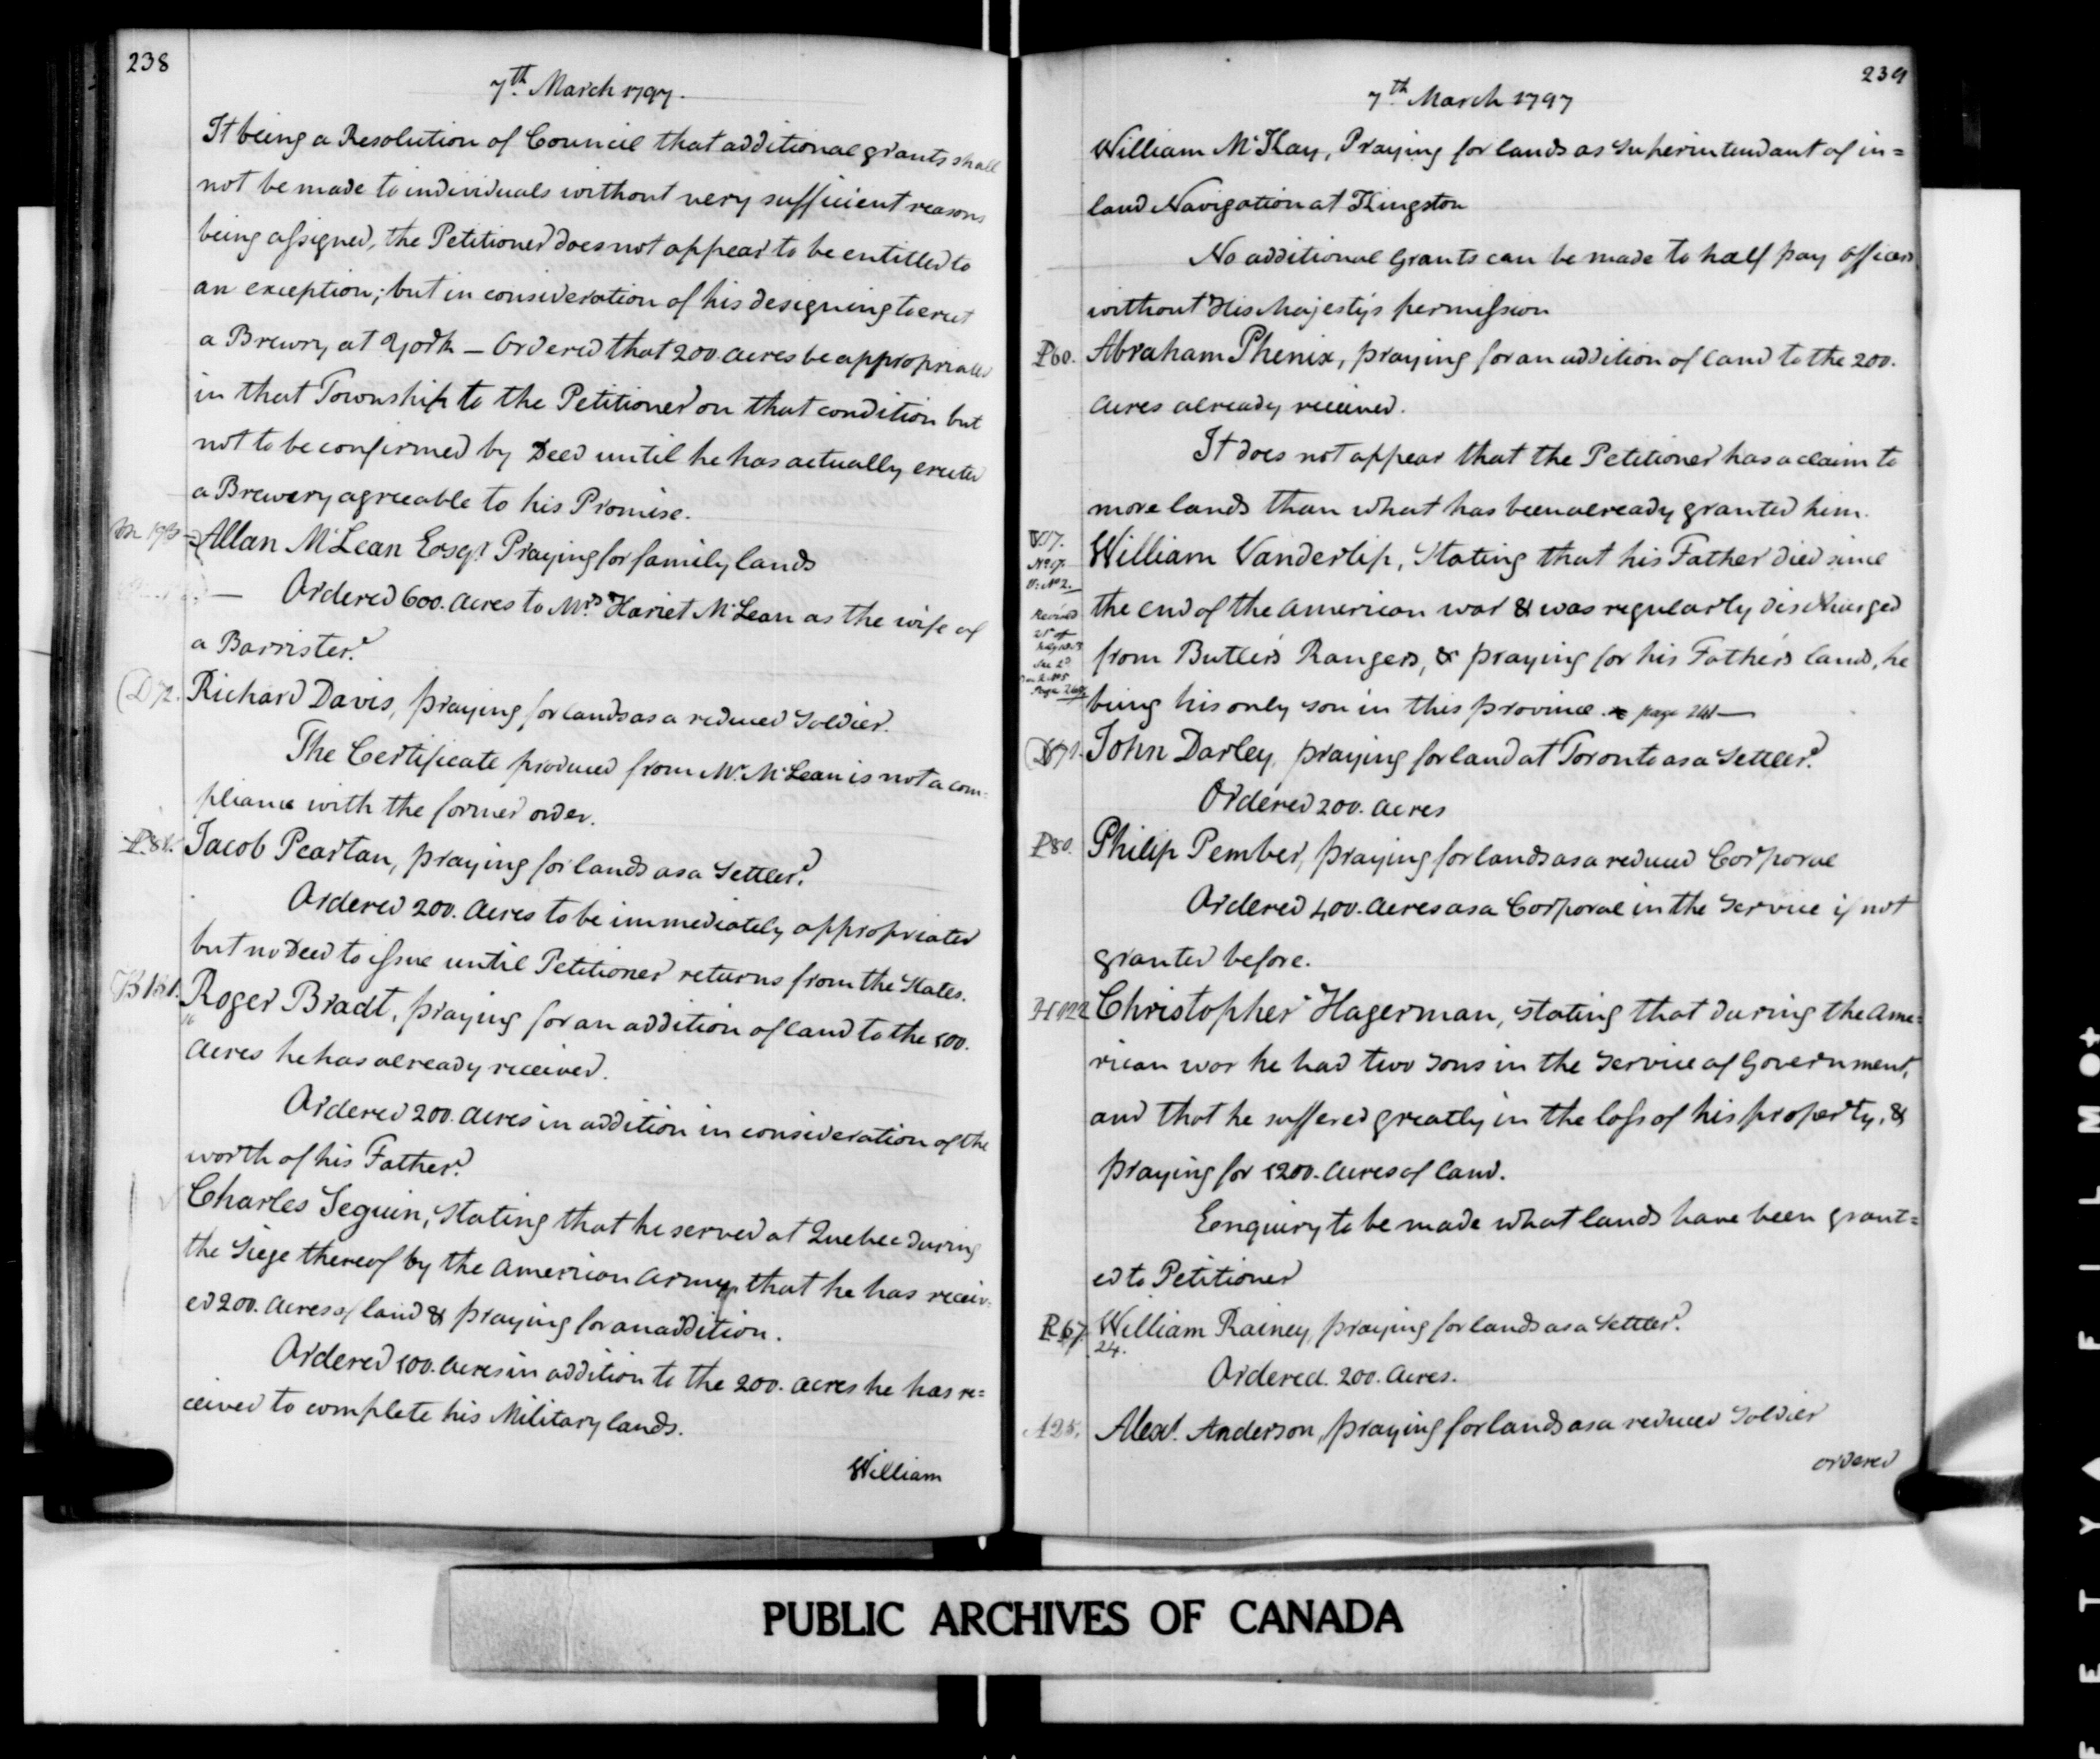 238
7th March 1797.
It being a Resolution of Council that additional grants shall
not be made to individuals without very sufficient reasons
being assigned, the Petitioner does not appear to be entitled to
an exception; but in consideration of his designing to erect
a Brewry at York — Ordered that 200. acres be appropriated
in that Township to the Petitioner on that condition but
not to be confirmed by Deed until he has actually erected
a Brewery agreeable to his Promise.
Allan McLean Esqr. Praying for family lands
Ordered 600. Acres to Mrs. Hariet McLean as the wife of
a Barrister.
D 72. Richard Davis, praying for lands as a reduced Soldier.
The Certificate produced from Mr. McLean is not a com-
pliance with the former order.
P 81. Jacob Peartan, praying for lands as a Settler.
Ordered 200. Acres to be immediately appropriated
but no Deed to issue until Petitioner returns from the States.
Roger Bradt, praying for an addition of land to the 500.
Acres he has already received.
Ordered 200. Acres in addition in consideration of the
worth of his Father.
Charles Seguin, Stating that he served at Quebec during
the Siege thereof by the American Army, that he has receiv-
ed 200. Acres of land & praying for an addition.
Ordered 100. Acres in addition to the 200. acres he has re=
ceived to complete his Military lands.
William
239
7th March 1797
William McKay, Praying for lands as Superintendant of in=
land Navigation at Kingston
No additional Grants can be made to half pay Officers
without His Majesty's permission
P 60. Abraham Phenix, praying for an addition of land to the 200.
Acres already received.
It does not appear that the Petitioner has a claim to
more lands than what has been already granted him.
William Vanderlip, Stating that his Father died since
the end of the American war & was regularly discharged
from Butler's Rangers, & praying for his Father's lands, he
being his only son in this province. page 241 —
D 71. John Darley, praying for land at Toronto as a Settler.
Ordered 200. Acres
P 80. Philip Pember, praying for lands as a reduced Corporal
Ordered 400. Acres as a Corporal in the Service if not
granted before.
H 122 Christopher Hagerman, stating that during the Ame=
rican war he had two Sons in the Service of Government,
and that he suffered greatly in the loss of his property, &
praying for 1200. Acres of land.
Enquiry to be made what lands have been grant=
ed to Petitioner
R 67. William Rainey, praying for lands as a Settler.
24.
Ordered. 200. Acres.
A 25. Alexr. Anderson, praying for lands as a reduced Soldier
ordered
PUBLIC ARCHIVES OF CANADA